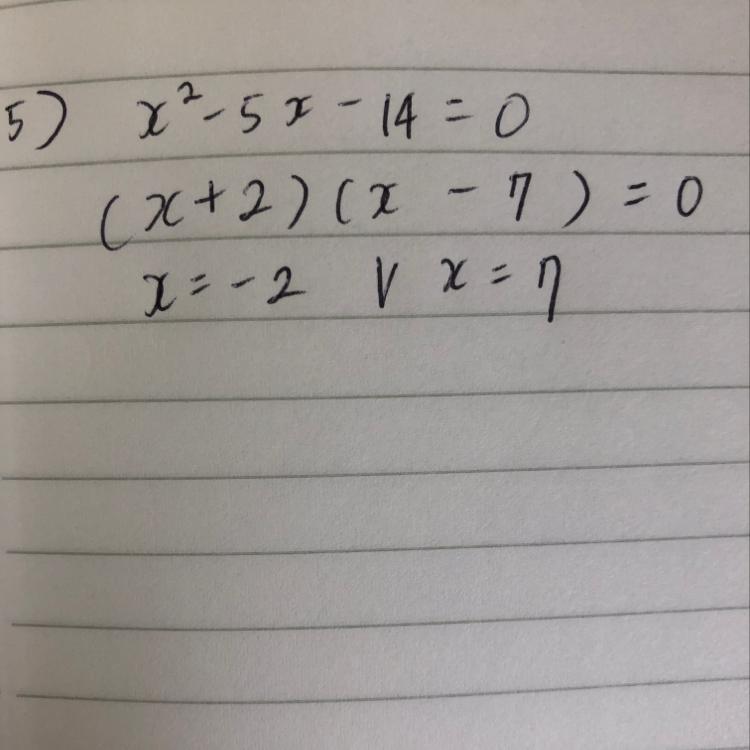 5) x² - 5x - 14 = 0
(x + 2) (x - 7) = 0
x = -2 ∨ x = 7